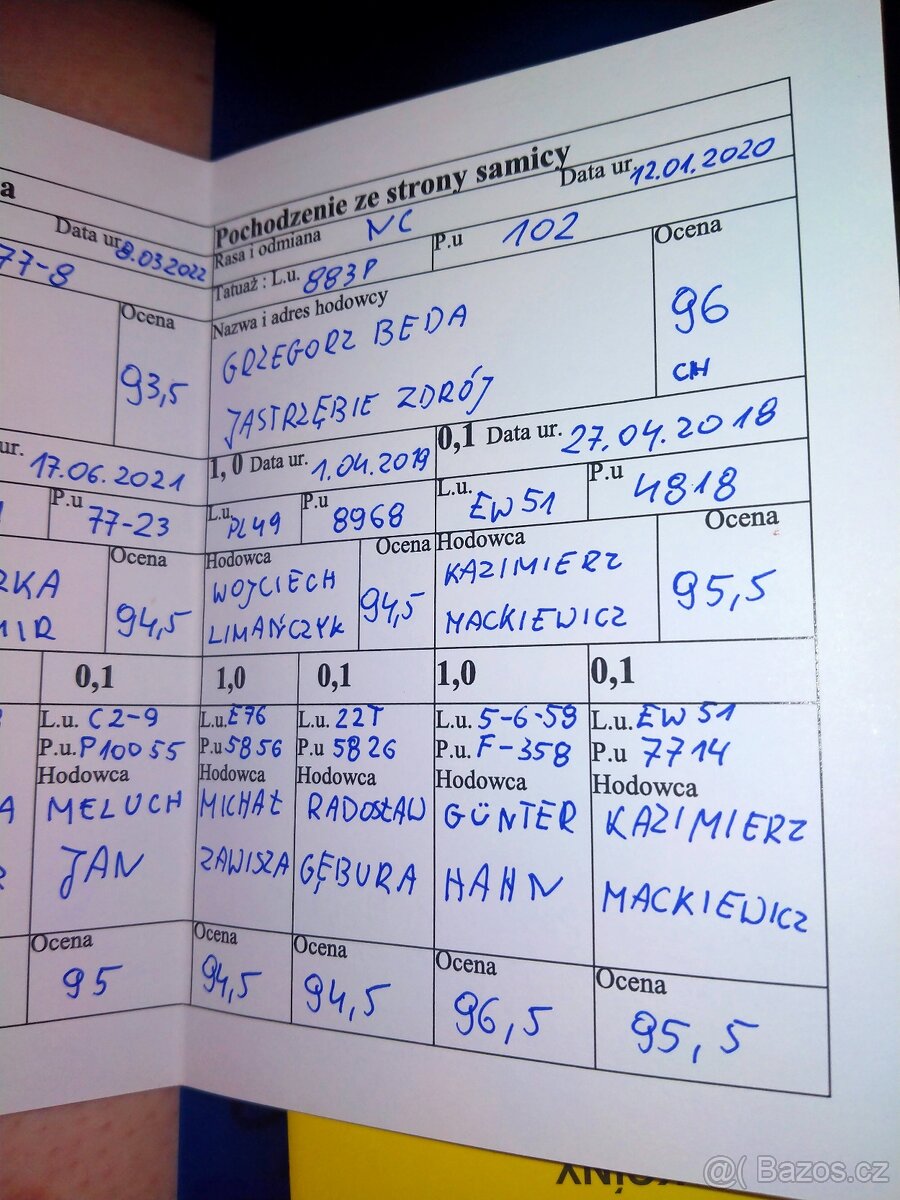 a
Data ur. 8.03.2022
77-8
Ocena
93,5
ur. 17.06.2021
P.u 77-23
Ocena
94,5
0,1
L.u. C2-9
P.u. P10055
Hodowca
MELUCH
JAN
Ocena
95
Pochodzenie ze strony samicy
Data ur. 12.01.2020
Rasa i odmiana NC
Tatuaż : L.u. 883P P.u 102
Nazwa i adres hodowcy
GRZEGORZ BEDA
JASTRZĘBIE ZDRÓJ
Ocena
96
CH
1,0 Data ur. 1.04.2019
L.u. PL49 P.u 8968
Hodowca
WOJCIECH
LIMAŃCZYK
Ocena
94,5
0,1 Data ur. 27.04.2018
L.u. EW 51 P.u 4818
Hodowca
KAZIMIERZ
MACKIEWICZ
Ocena
95,5
1,0
L.u. E76
P.u 5856
Hodowca
MICHAŁ
ZAWISZA
Ocena
94,5
0,1
L.u. 22T
P.u 5826
Hodowca
RADOSŁAW
GĘBURA
Ocena
94,5
1,0
L.u. 5-6-59
P.u. F-358
Hodowca
GÜNTER
HAHN
Ocena
96,5
0,1
L.u. EW 51
P.u 7714
Hodowca
KAZIMIERZ
MACKIEWICZ
Ocena
95,5
@( Bazos.cz